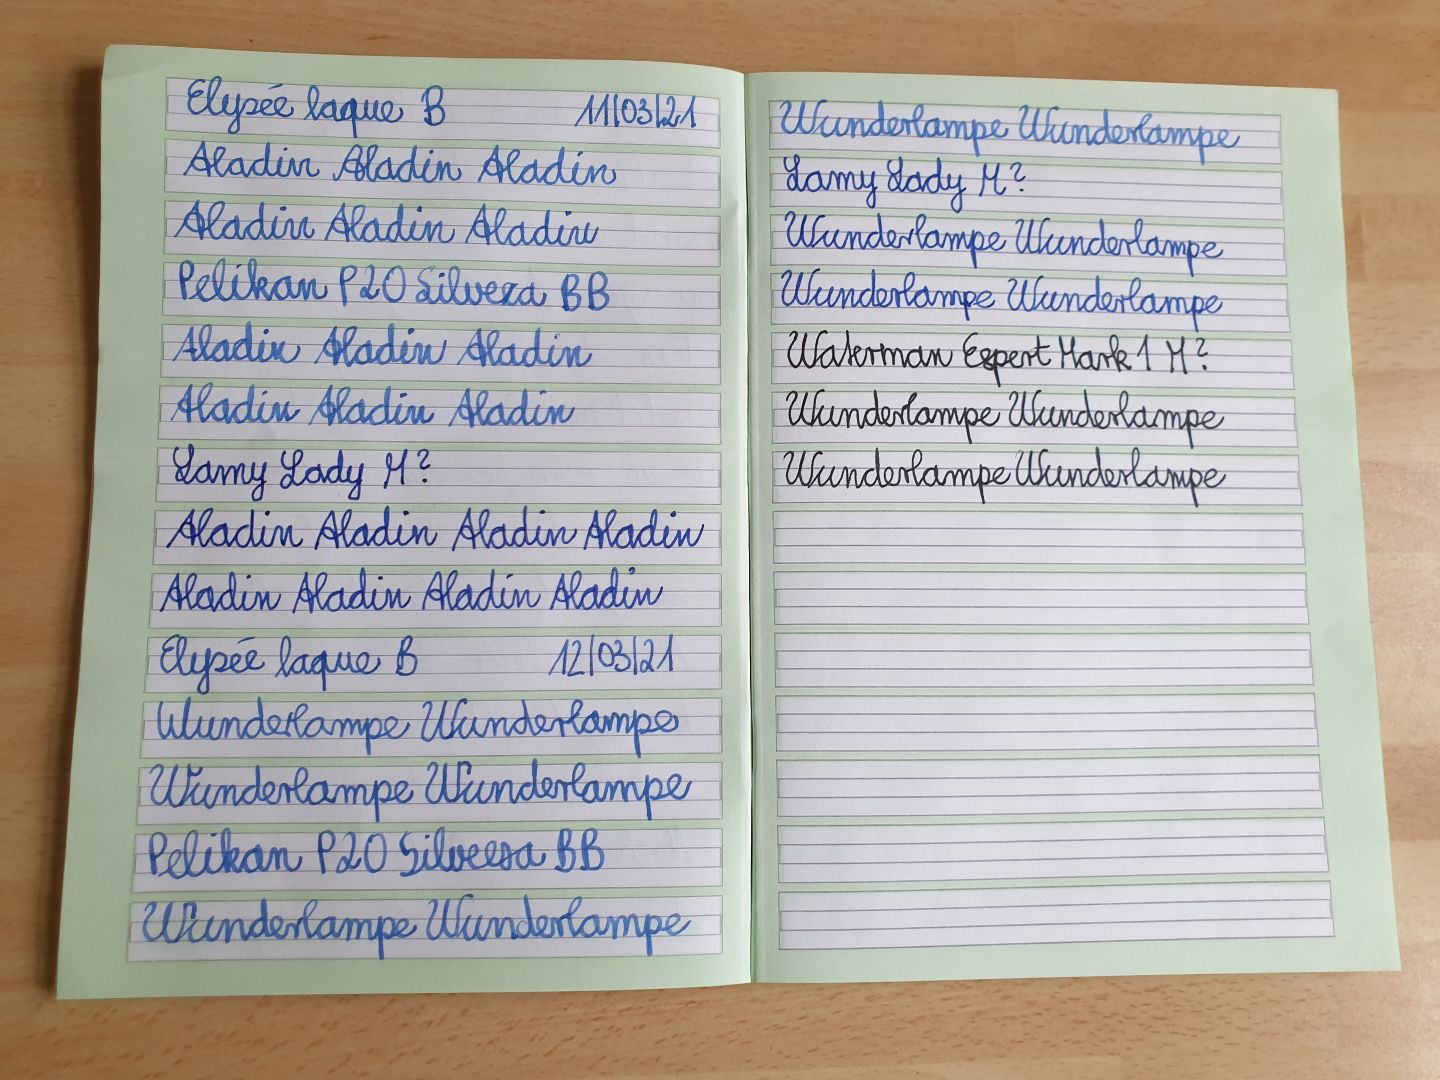 Elysée laque B 11/03/21
Aladin Aladin Aladin
Aladin Aladin Aladin
Pelikan P20 Silvexa BB
Aladin Aladin Aladin
Aladin Aladin Aladin
Lamy Lady M?
Aladin Aladin Aladin Aladin
Aladin Aladin Aladin Aladin
Elysée laque B 12/03/21
Wunderlampe Wunderlampe
Wunderlampe Wunderlampe
Pelikan P20 Silvexa BB
Wunderlampe Wunderlampe
Wunderlampe Wunderlampe
Lamy Lady M?
Wunderlampe Wunderlampe
Wunderlampe Wunderlampe
Waterman Expert Mark 1 M?
Wunderlampe Wunderlampe
Wunderlampe Wunderlampe